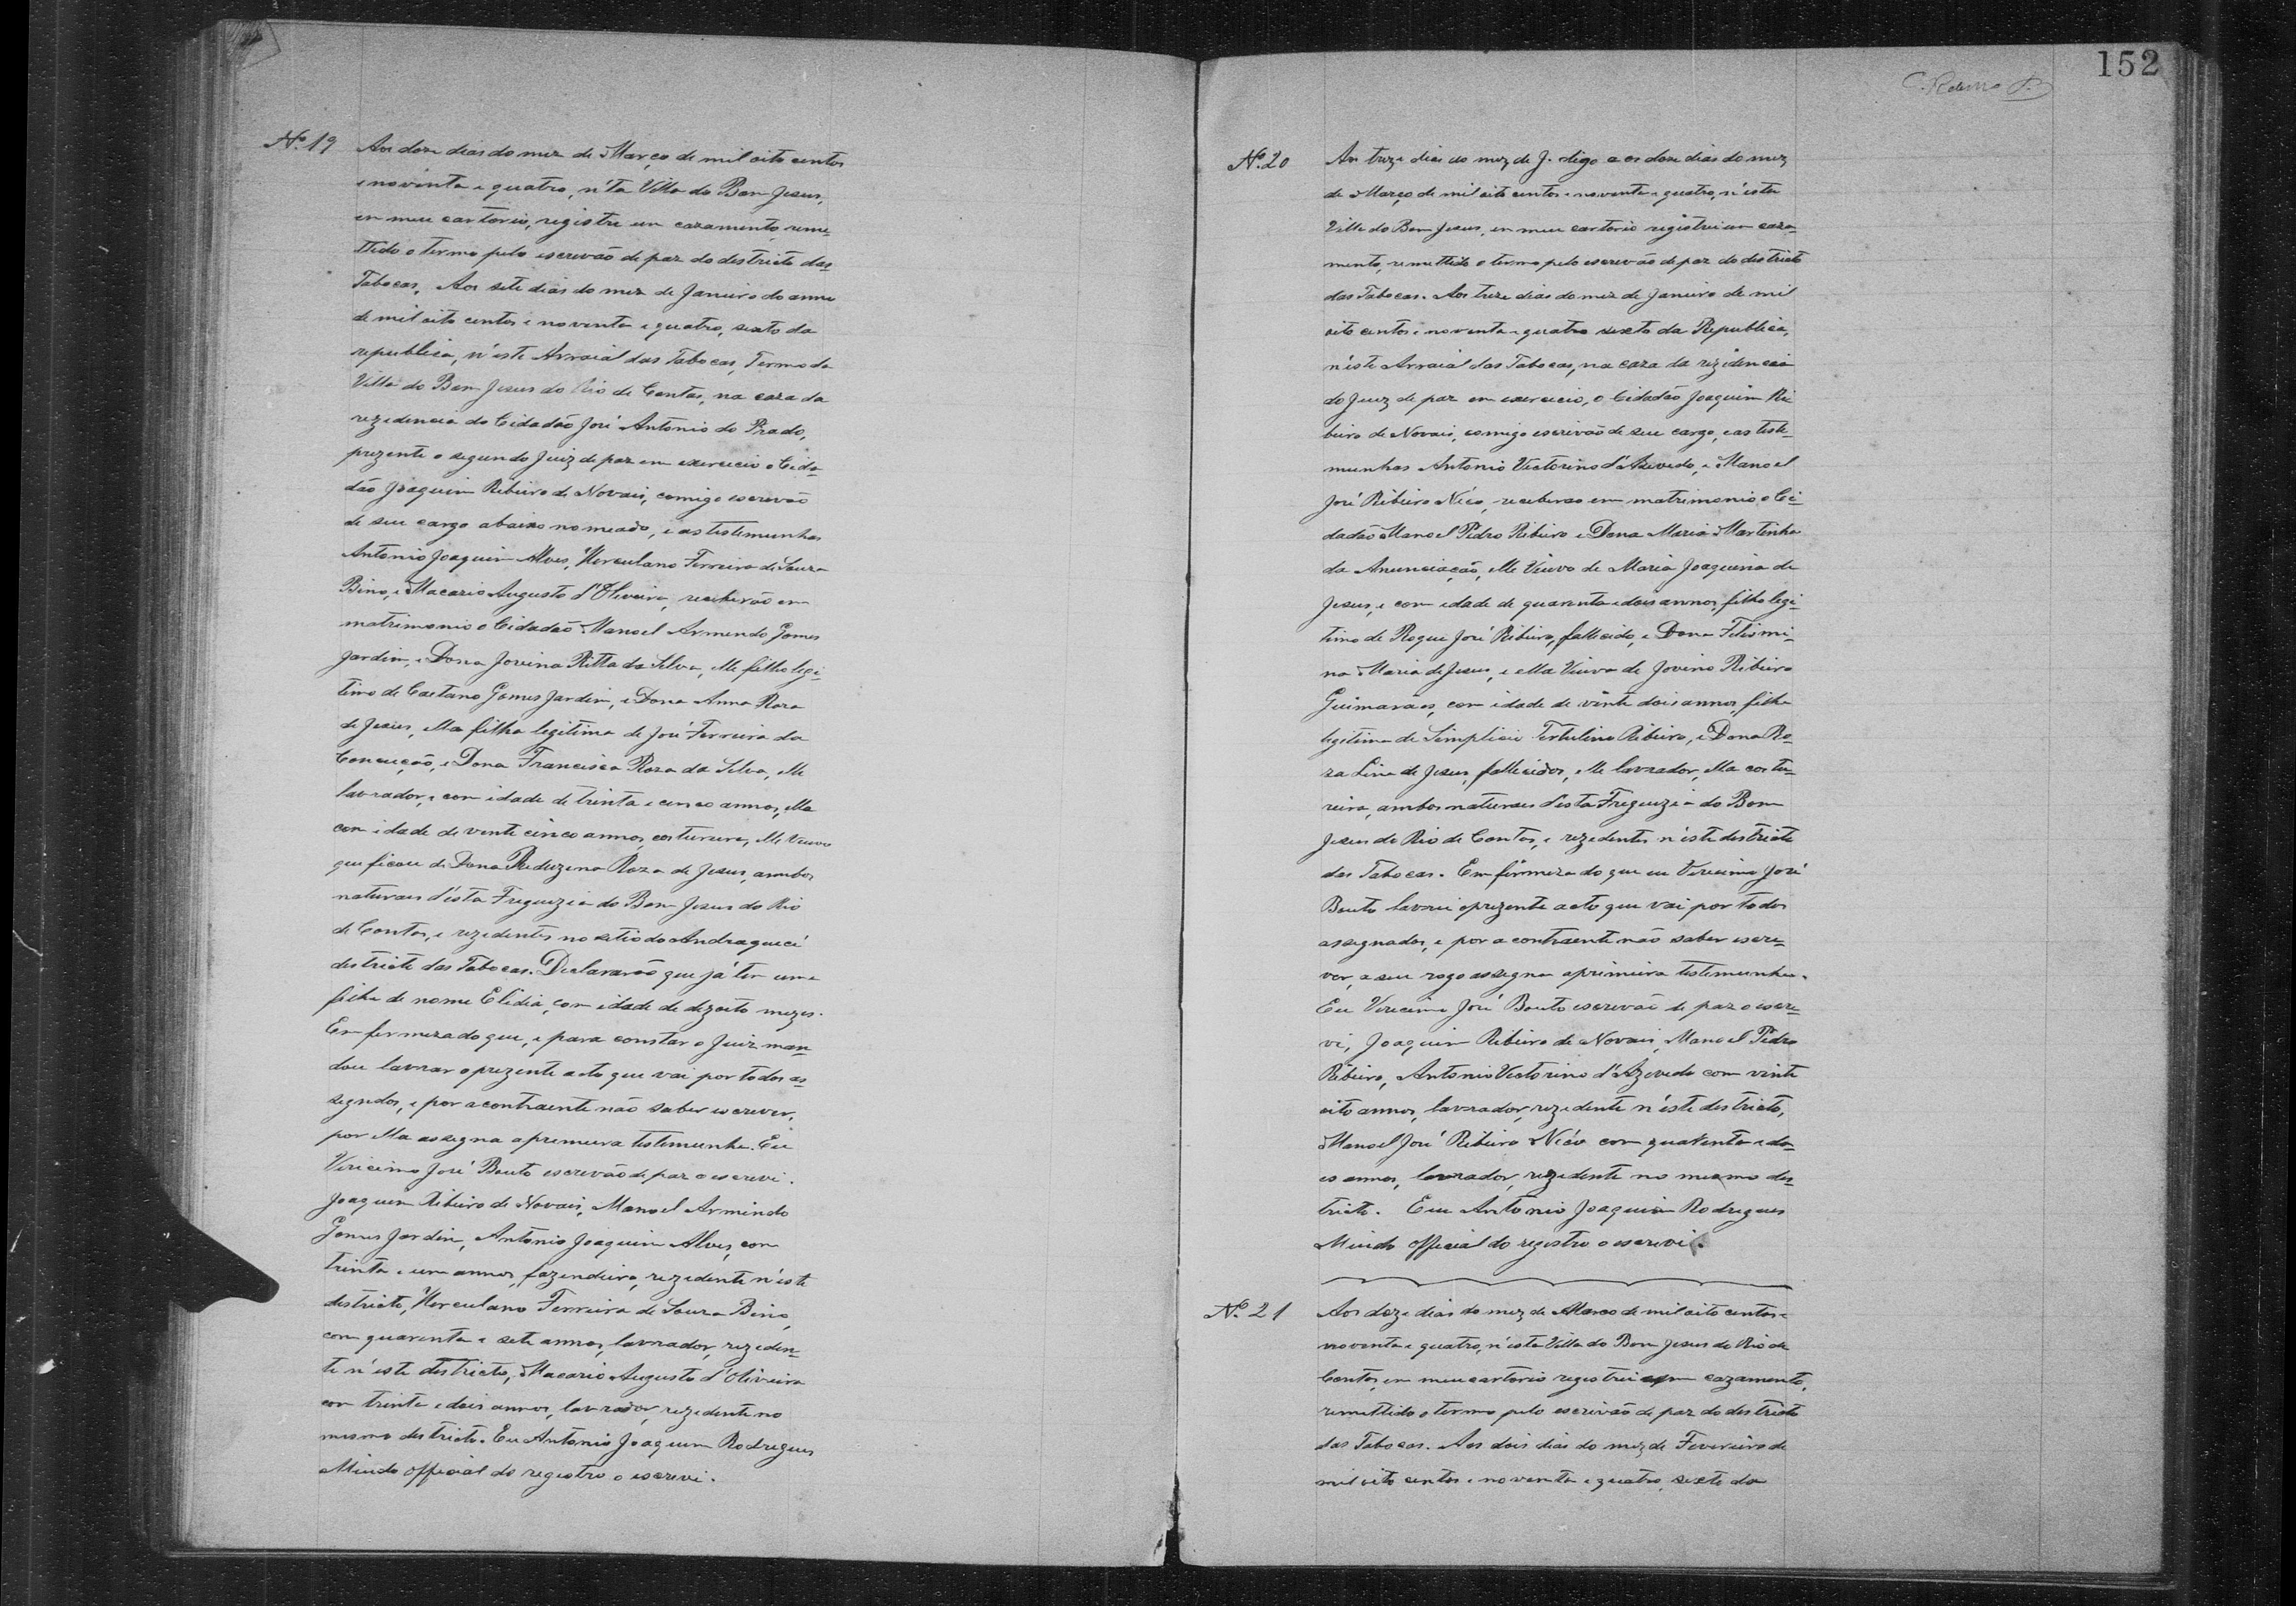 Nº 19 Aos doze dias do mez de Março de mil oito centos
e noventa e quatro, n'ta Villa do Bom Jesus,
em meu cartorio, registre um cazamento, reme-
ttido o termo pelo escrevão de paz do destricto das
Tabocas. Aos sete dias do mez de Janeiro do anno
de mil oito centos e noventa e quatro, sexto da
republica, n'este Arraial das Tabocas, Termo da
Villa do Bom Jesus do Rio de Contas, na caza da
rezedencia do Cidadão José Antonio do Prado,
prezente o segundo Juiz de paz em exercicio o Cida-
dão Joaquim Ribeiro de Novais, comigo escrevão
de seu cargo abaixo nomeado, e as testemunhas
Antonio Joaquim Alves, Herculano Ferreira de Souza
Bino, e Macario Augusto d'Oliveira, receberão em
matrimonio o Cidadão Manoel Armindo Gomes
Jardim, e Dona Jovina Ritta da Silva, elle filho legi-
timo de Caetano Gomes Jardim, e Dona Anna Roza
de Jesus, ella filha legitima de José Ferreira da
Conceição, e Dona Francisca Roza da Silva, elle
lavrador, e com idade de trinta e cinco annos, ella
com idade de vente cinco annos, costureira, elle Viuvo
que ficou de Dona Reduzena Roza de Jesus, ambos
naturaes d'ésta Freguezia do Bom Jesus do Rio
de Contas, e rezedentes no setio do Andraquecé
destricto das Tabocas. Declararão que já tem uma
filha de nome Elidia, com idade de dezoito mezes.
Em fermeza do que, e para constar o Juiz man-
dou lavrar o prezente acto que vai por todos as-
segnados, e por a contraente não saber escrever,
por ella assegna a premeira testemunha. Eu
Viricimo José Bouto escrevão de paz o escrevi.
Joaquim Ribeiro de Novais, Manoel Armindo
Gomes Jardim, Antonio Joaquim Alves, com
trinta e um annos, fazendeiro, rezedente n'éste
destricto, Herculano Ferreira de Souza Bino,
com quarenta e sete annos, lavrador, rezeden-
te n'este destricto, Macario Augusto d'Oliveira
com trinta e dois annos, lavrador, rezedente no
mesmo destricto. Eu Antonio Joaquim Rodrigues
Miudo official do registro o escrevi.
152
Nº 20 Ao treze dias do mez de J. digo aos doze dias do mez
de Março de mil oito centos e noventa e quatro, n'ésta
Villa do Bom Jesus, em meu cartorio registrei um caza-
mento, remettido o termo pelo escrevão de paz do destricto
das Tabocas. Aos treze dias do mez de Janeiro de mil
oito centos e noventa e quatro sexto da Republica,
n'éste Arraial das Tabocas, na caza da rezidencia
do Juiz de paz em exercicio, o Cidadão Joaquim Ri
beiro de Novais, comigo escrivão de seu cargo, e as teste-
munhas Antonio Victorino d'Azevedo, e Manoel
José Ribeiro Nico, receberao em matrimonio o Ci-
dadão Manoel Pedro Ribeiro e Dona Maria Martinha
da Anunciação, elle Viuvo de Maria Joaquina de
Jesus, e com idade de quarenta e dois annos, filho legi-
timo de Roque José Ribeiro, fallicido, e Dona Felismi-
na Maria de Jesus, e ella Viuva de Jovino Ribeiro
Guimarães, com idade de vinte dois annos, filha
legitima de Simplicio Tertulino Ribeiro, e Dona Ro-
za Lina de Jesus, fallicidos, elle lavrador, ella costu-
reira, ambos naturaes d'esta Freguezia do Bom
Jesus do Rio de Contas, e rezedentes n'éste destricto
das Tabocas. Em fermeza do que eu Viricimo José
Bouto lavrei o prezente acto que vai por todos
assegnados, e por a contraente não saber escre-
ver, a seu rogo assegna a primeira testemunha.
Eu Viricimo José Bouto escrevão de paz o escre-
vi, Joaquim Ribeiro de Novais, Manoel Pedro
Ribeiro, Antonio Victorino d'Azevedo com vinte
oito annos, lavrador, rezedente n'éste destricto,
Manoel José Ribeiro Nico com quarenta e do-
es annos, lavrador, rezedente no mesmo des-
tricto. Eu Antonio Joaquim Rodrigues
Miudo official do registro o escrevi.
Nº 21 Aos doze dias do mez de Marco de mil oito centos e
noventa e quatro, n'ésta Villa do Bom Jesus do Rio de
Contas, em meu cartorio registrei um cazamento,
remettido o termo pelo escrivão de paz do destricto
das Tabocas. Aos dois dias do mez de Fevereiro de
mil oito centos e noventa e quatro, sexto da